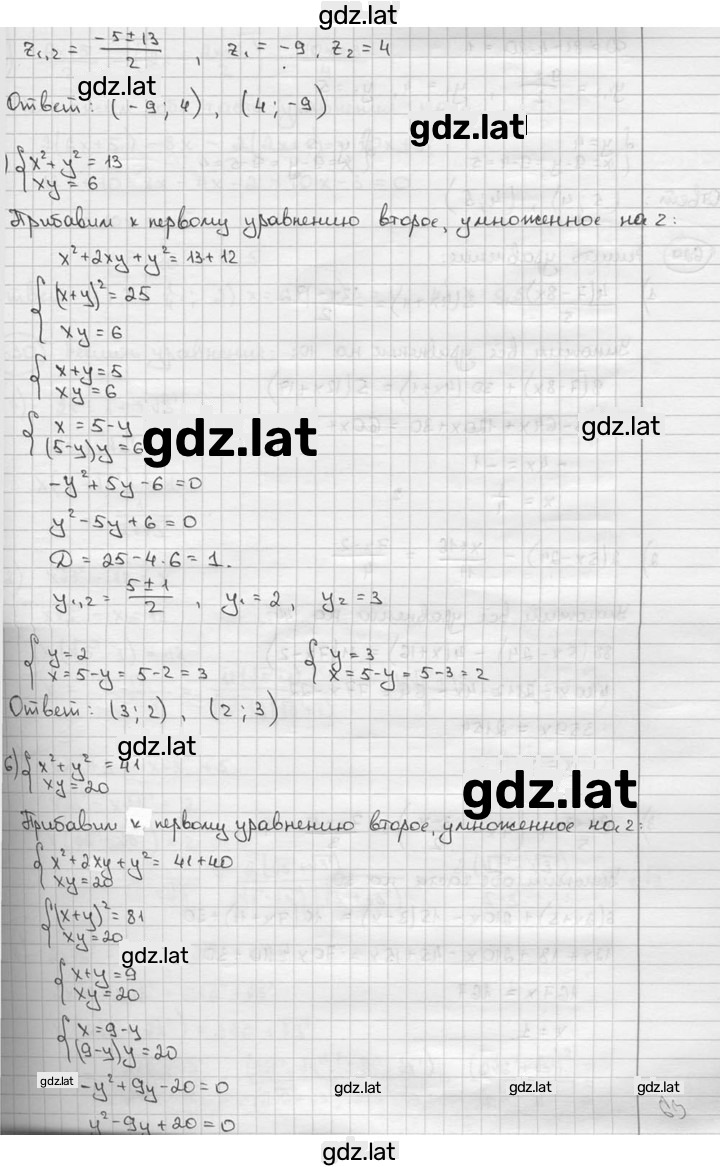 gdz.lat
z₁,₂ = (-5±13)/2 , z₁ = -9, z₂ = 4
gdz.lat
Ответ: (-9; 4), (4; -9)
gdz.lat
) { x² + y² = 13
xy = 6
Прибавим к первому уравнению второе, умноженное на 2:
x² + 2xy + y² = 13 + 12
{ (x+y)² = 25
xy = 6
{ x + y = 5
xy = 6
{ x = 5 - y
(5-y)y = 6
gdz.lat
gdz.lat
-y² + 5y - 6 = 0
y² - 5y + 6 = 0
D = 25 - 4·6 = 1.
y₁,₂ = (5±1)/2 , y₁ = 2, y₂ = 3
{ y = 2 { y = 3
x = 5-y = 5-2 = 3 x = 5-y = 5-3 = 2
Ответ: (3; 2), (2; 3)
gdz.lat
6) { x² + y² = 41
xy = 20
gdz.lat
Прибавим к первому уравнению второе, умноженное на 2:
{ x² + 2xy + y² = 41 + 40
xy = 20
{ (x+y)² = 81
xy = 20
gdz.lat
{ x + y = 9
xy = 20
{ x = 9 - y
(9-y)y = 20
gdz.lat
-y² + 9y - 20 = 0
gdz.lat
gdz.lat
gdz.lat
y² - 9y + 20 = 0
gdz.lat